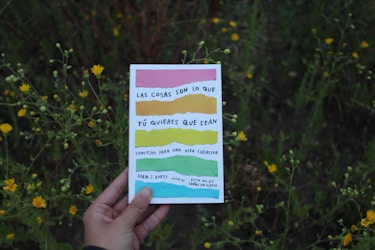 LAS COSAS SON LO QUE
TÚ QUIERES QUE SEAN
CONSEJOS PARA UNA VIDA CREATIVA
ADAM J. KURTZ